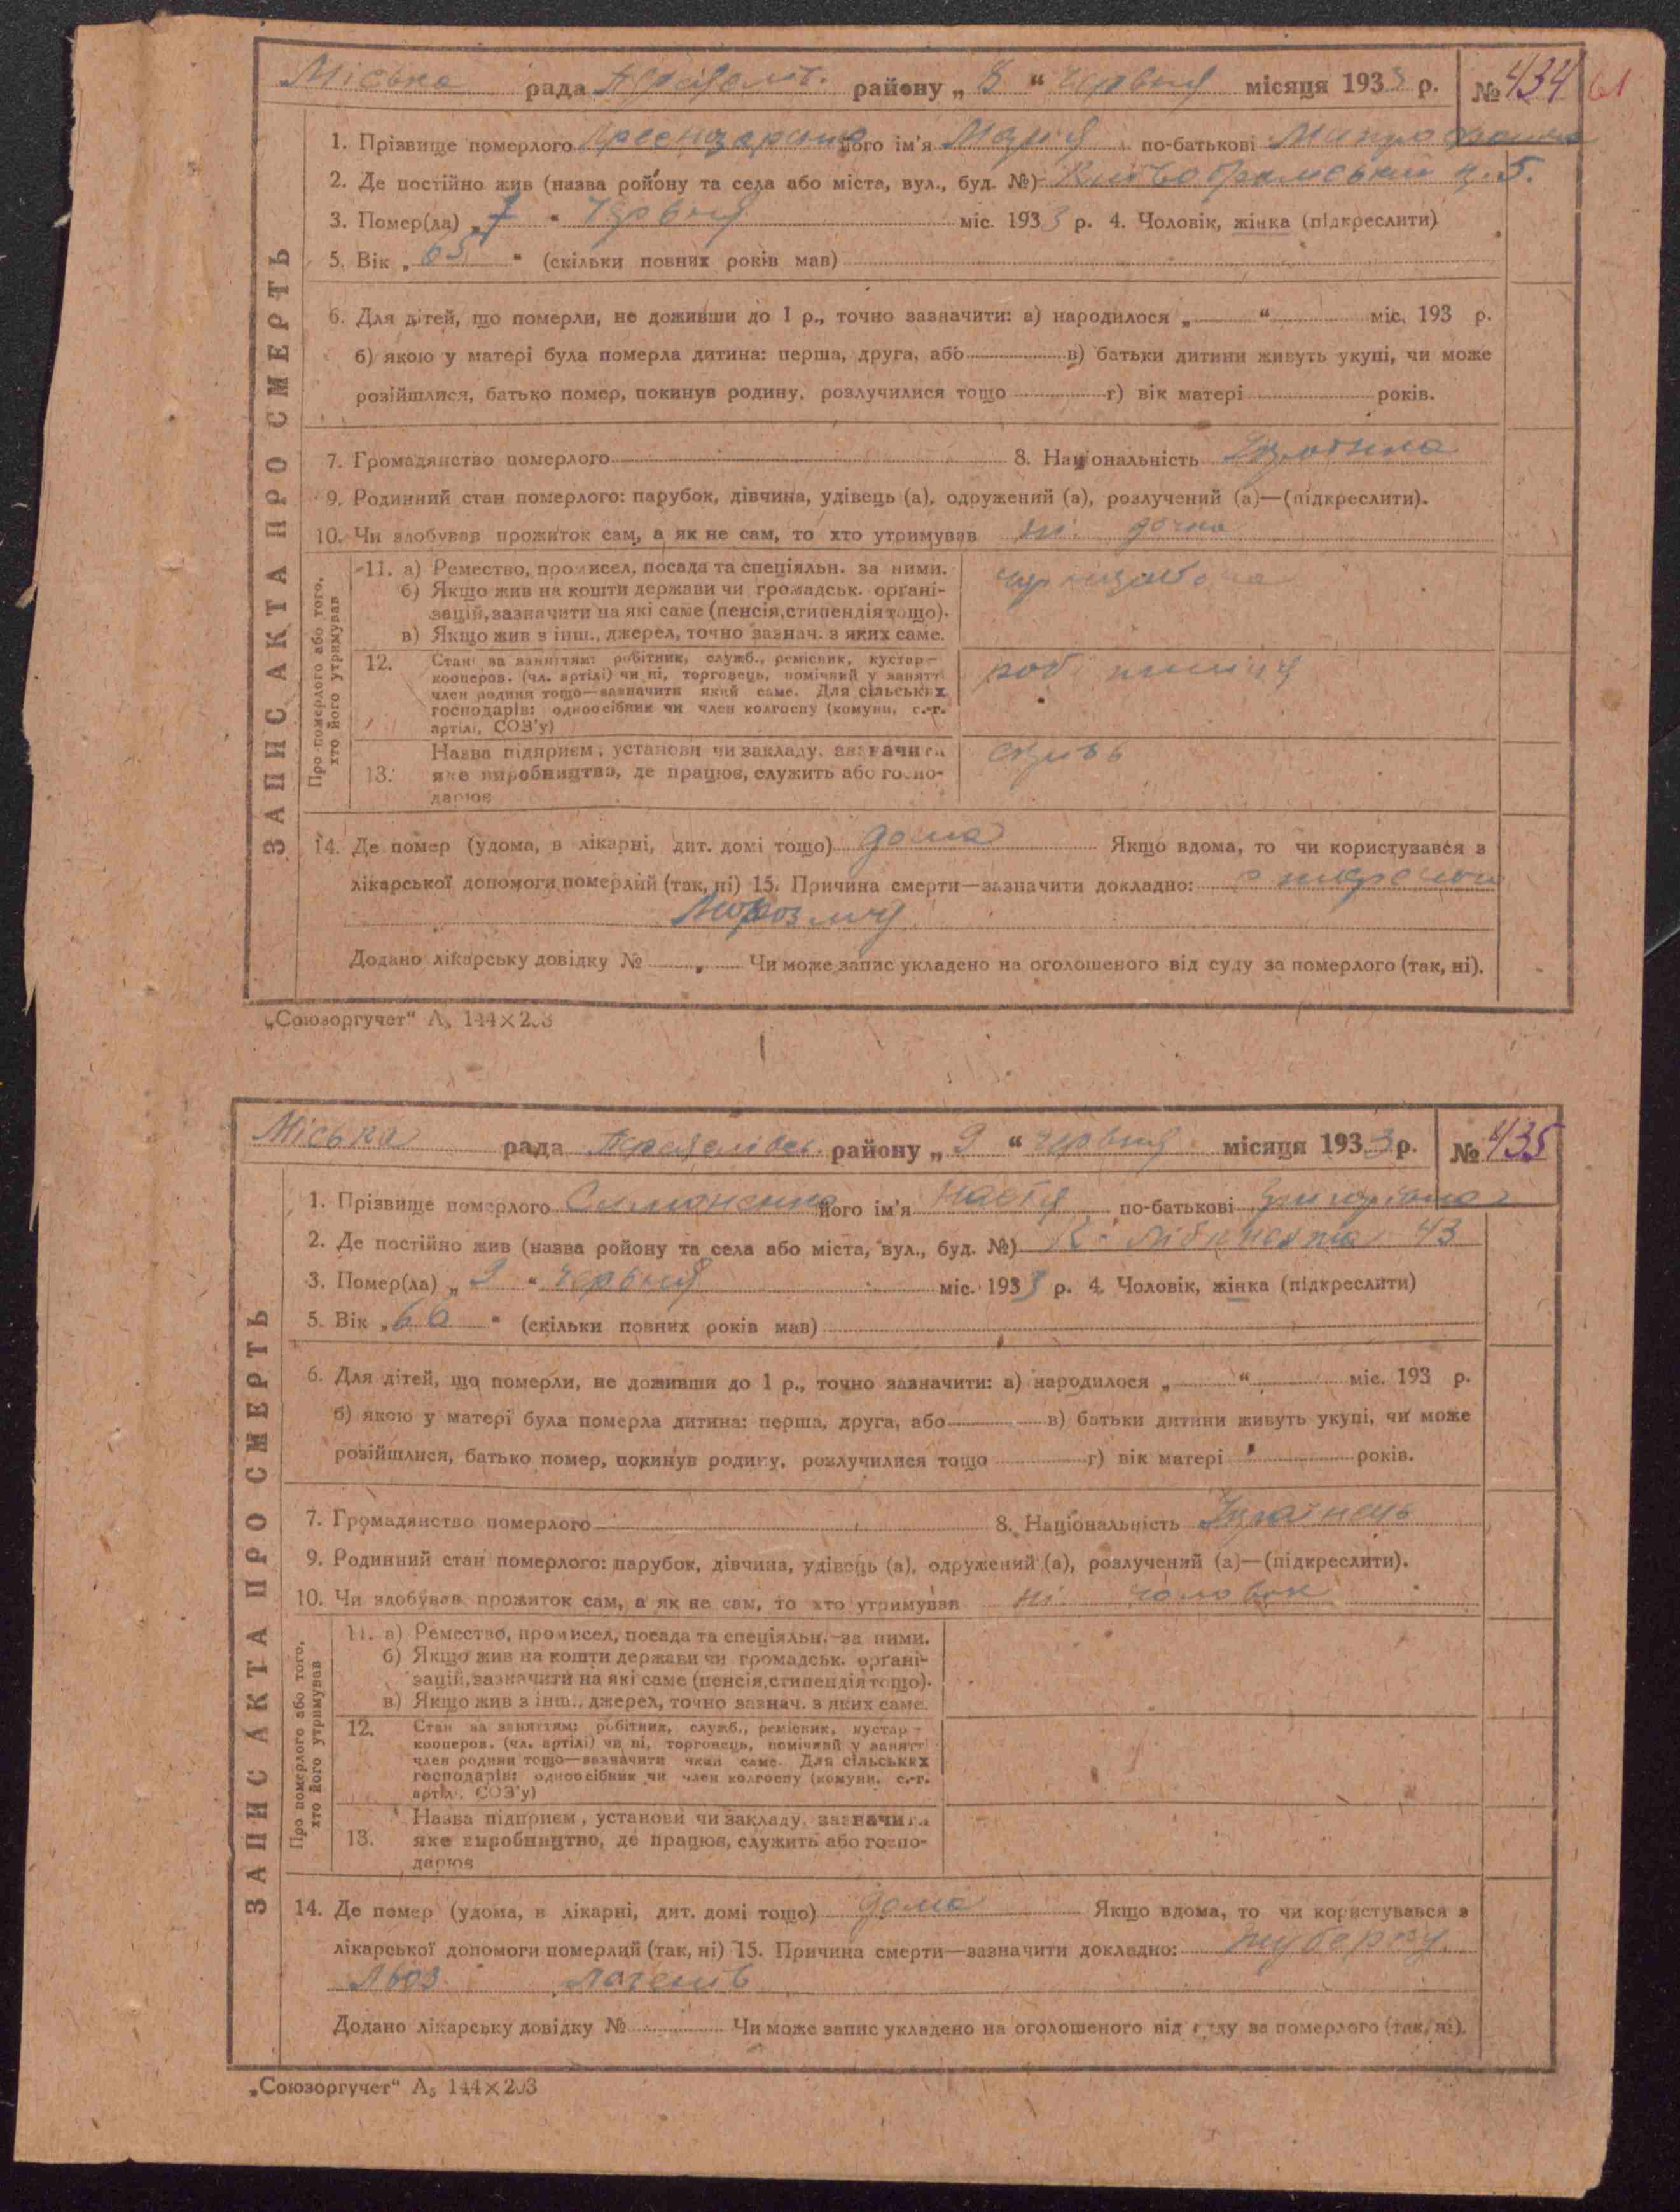 Міська рада району „ 8 “ червня місяця 1933 р. № 434 61
ЗАПИС АКТА ПРО СМЕРТЬ
1. Прізвище померлого його ім'я Марія по-батькові
2. Де постійно жив (назва ройону та села або міста, вул., буд. №) 5.
3. Помер(ла) „ 7 “ червня міс. 1933 р. 4. Чоловік, жінка (підкреслити)
5. Вік „ 65 “ (скільки повних років мав)
6. Для дітей, що померли, не доживши до 1 р., точно зазначити: а) народилося „ “ міс. 193 р.
б) якою у матері була померла дитина: перша, друга, або в) батьки дитини живуть укупі, чи може
розійшлися, батько помер, покинув родину, розлучилися тощо г) вік матері років.
7. Громадянство померлого 8. Національність
9. Родинний стан померлого: парубок, дівчина, удівець (а), одружений (а), розлучений (а)—(підкреслити).
10. Чи здобував прожиток сам, а як не сам, то хто утримував ні дочка
Про померлого або того, хто його утримував
11. а) Ремество, промисел, посада та спеціяльн. за ними.
б) Якщо жив на кошти держави чи громадськ. органі-
зацій, зазначити на які саме (пенсія, стипендія тощо).
в) Якщо жив з інш., джерел, точно зазнач. з яких саме.
12. Стан за заняттям: робітник, служб., ремісник, кустар-
кооперов. (чл. артілі) чи ні, торговець, помічний у занятті
член родини тощо—зазначити який саме. Для сільських
господарів: одноосібник чи член колгоспу (комуни, с.-г.
артілі, СОЗ'у)
13. Назва підприєм., установи чи закладу, зазначити
яке виробництво, де працює, служить або госпо-
дарює
14. Де помер (удома, в лікарні, дит. домі тощо) дома Якщо вдома, то чи користувався з
лікарської допомоги померлий (так, ні) 15. Причина смерти—зазначити докладно:
Додано лікарську довідку № Чи може запис укладено на оголошеного від суду за померлого (так, ні).
„Союзоргучет“ А₅ 144×203
Міська рада району „ 9 “ червня місяця 1933 р. № 435
ЗАПИС АКТА ПРО СМЕРТЬ
1. Прізвище померлого Симоненко його ім'я Настя по-батькові
2. Де постійно жив (назва ройону та села або міста, вул., буд. №) К. Лібкнехта 43
3. Помер(ла) „ 9 “ червня міс. 1933 р. 4. Чоловік, жінка (підкреслити)
5. Вік „ 66 “ (скільки повних років мав)
6. Для дітей, що померли, не доживши до 1 р., точно зазначити: а) народилося „ “ міс. 193 р.
б) якою у матері була померла дитина: перша, друга, або в) батьки дитини живуть укупі, чи може
розійшлися, батько помер, покинув родину, розлучилися тощо г) вік матері років.
7. Громадянство померлого 8. Національність Українець
9. Родинний стан померлого: парубок, дівчина, удівець (а), одружений (а), розлучений (а)—(підкреслити).
10. Чи здобував прожиток сам, а як не сам, то хто утримував ні чоловік
Про померлого або того, хто його утримував
11. а) Ремество, промисел, посада та спеціяльн. за ними.
б) Якщо жив на кошти держави чи громадськ. органі-
зацій, зазначити на які саме (пенсія, стипендія тощо).
в) Якщо жив з інш., джерел, точно зазнач. з яких саме.
12. Стан за заняттям: робітник, служб., ремісник, кустар-
кооперов. (чл. артілі) чи ні, торговець, помічний у занятті
член родини тощо—зазначити який саме. Для сільських
господарів: одноосібник чи член колгоспу (комуни, с.-г.
артілі, СОЗ'у)
13. Назва підприєм., установи чи закладу, зазначити
яке виробництво, де працює, служить або госпо-
дарює
14. Де помер (удома, в лікарні, дит. домі тощо) дома Якщо вдома, то чи користувався з
лікарської допомоги померлий (так, ні) 15. Причина смерти—зазначити докладно: туберку
льоз легенів
Додано лікарську довідку № Чи може запис укладено на оголошеного від суду за померлого (так, ні).
„Союзоргучет“ А₅ 144×203